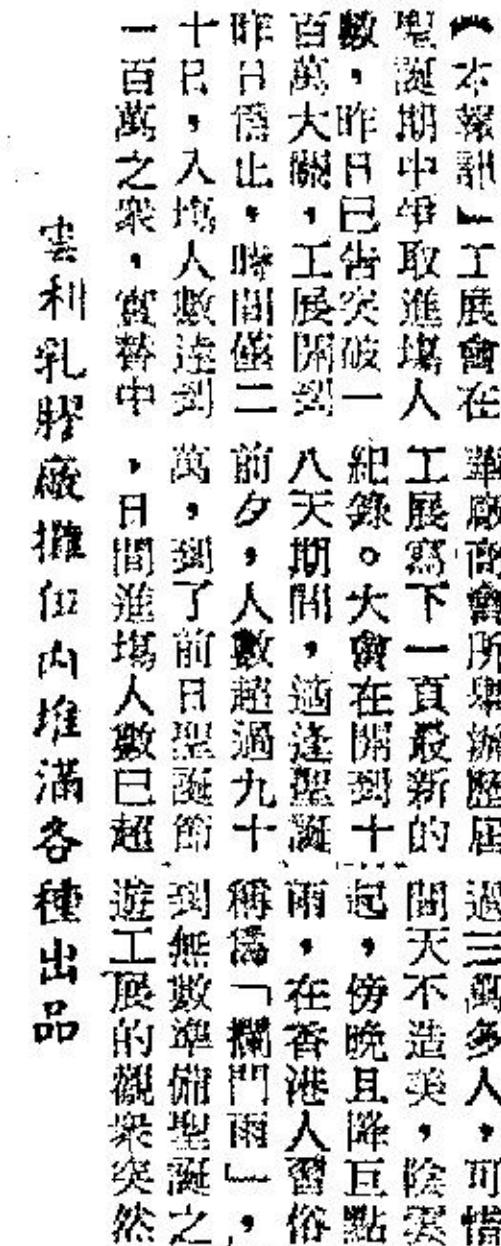 【本報訊】工展會在
聖誕期中爭取進塲人
數,昨日已告突破一
百萬大關,工展開到
昨日爲止,時間僅二
十日,入塲人數達到
一百萬之衆,實替中
華廠商會所舉辦歷屆
工展寫下一頁最新的
紀錄。大會在開到十
八天期間,適逢聖誕
前夕,人數超過九十
萬,到了前日聖誕節
,日間進塲人數已超
過三萬多人,可惜
間天不造美,陰雲
起,傍晚且降巨點
雨,在香港人習俗
稱爲「攔門雨」,
到無數準備聖誕之
遊工展的觀衆突然
雲利乳膠廠攤位內堆滿各種出品